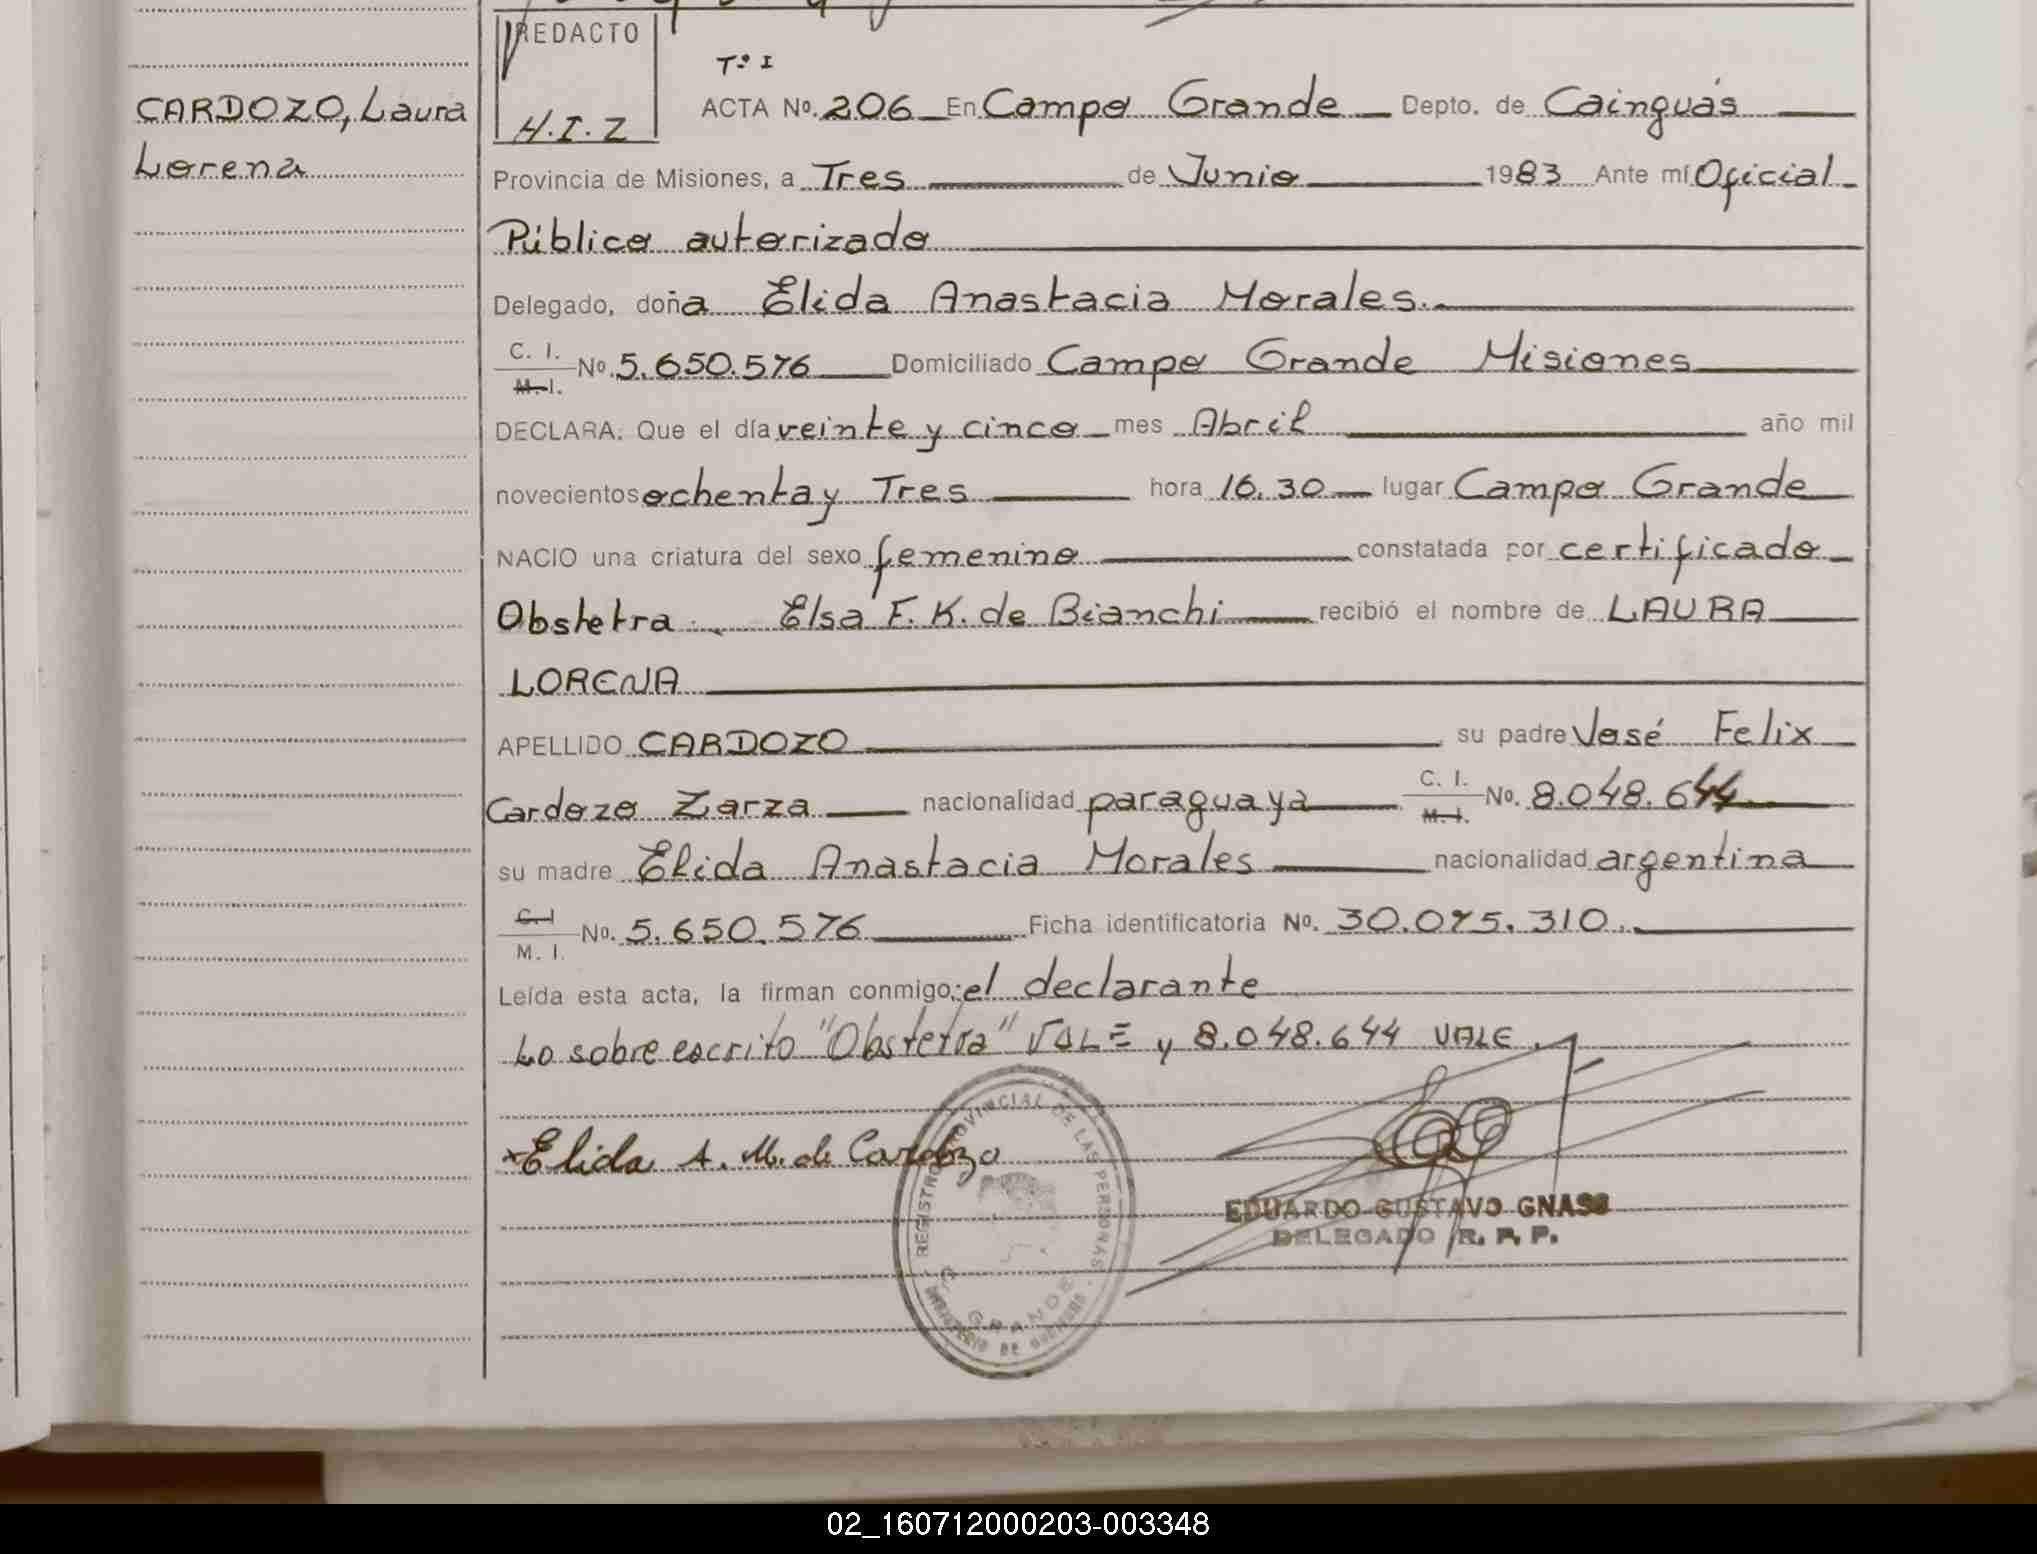 REDACTO
H.I.Z
CARDOZO, Laura
Lorena
Tº I
ACTA Nº. 206 En Campo Grande Depto. de Cainguás
Provincia de Misiones, a Tres de Junio 1983 Ante mí Oficial
Público autorizado
Delegado, doña Elida Anastacia Morales.
C. I.
M. I.
Nº. 5.650.576 Domiciliado Campo Grande Misiones
DECLARA: Que el día veinte y cinco mes Abril año mil
novecientos ochenta y Tres hora 16.30 lugar Campo Grande
NACIO una criatura del sexo femenino constatada por certificado
Obstetra Elsa F. K. de Bianchi recibió el nombre de LAURA
LORENA
APELLIDO CARDOZO su padre José Felix
Cardozo Zarza nacionalidad paraguaya C. I. M. I. Nº. 8.048.644
su madre Elida Anastacia Morales nacionalidad argentina
C. I
M. I.
Nº. 5.650.576 Ficha identificatoria Nº. 30.075.310.
Leída esta acta, la firman conmigo: el declarante
Lo sobre escrito "Obstetra" VALE y 8.048.644 VALE.
Elida A. M. de Cardozo
REGISTRO PROVINCIAL DE LAS PERSONAS
GRANDE
MINISTERIO DE GOBIERNO
EDUARDO GUSTAVO GNASS
DELEGADO R. P. P.
02_160712000203-003348